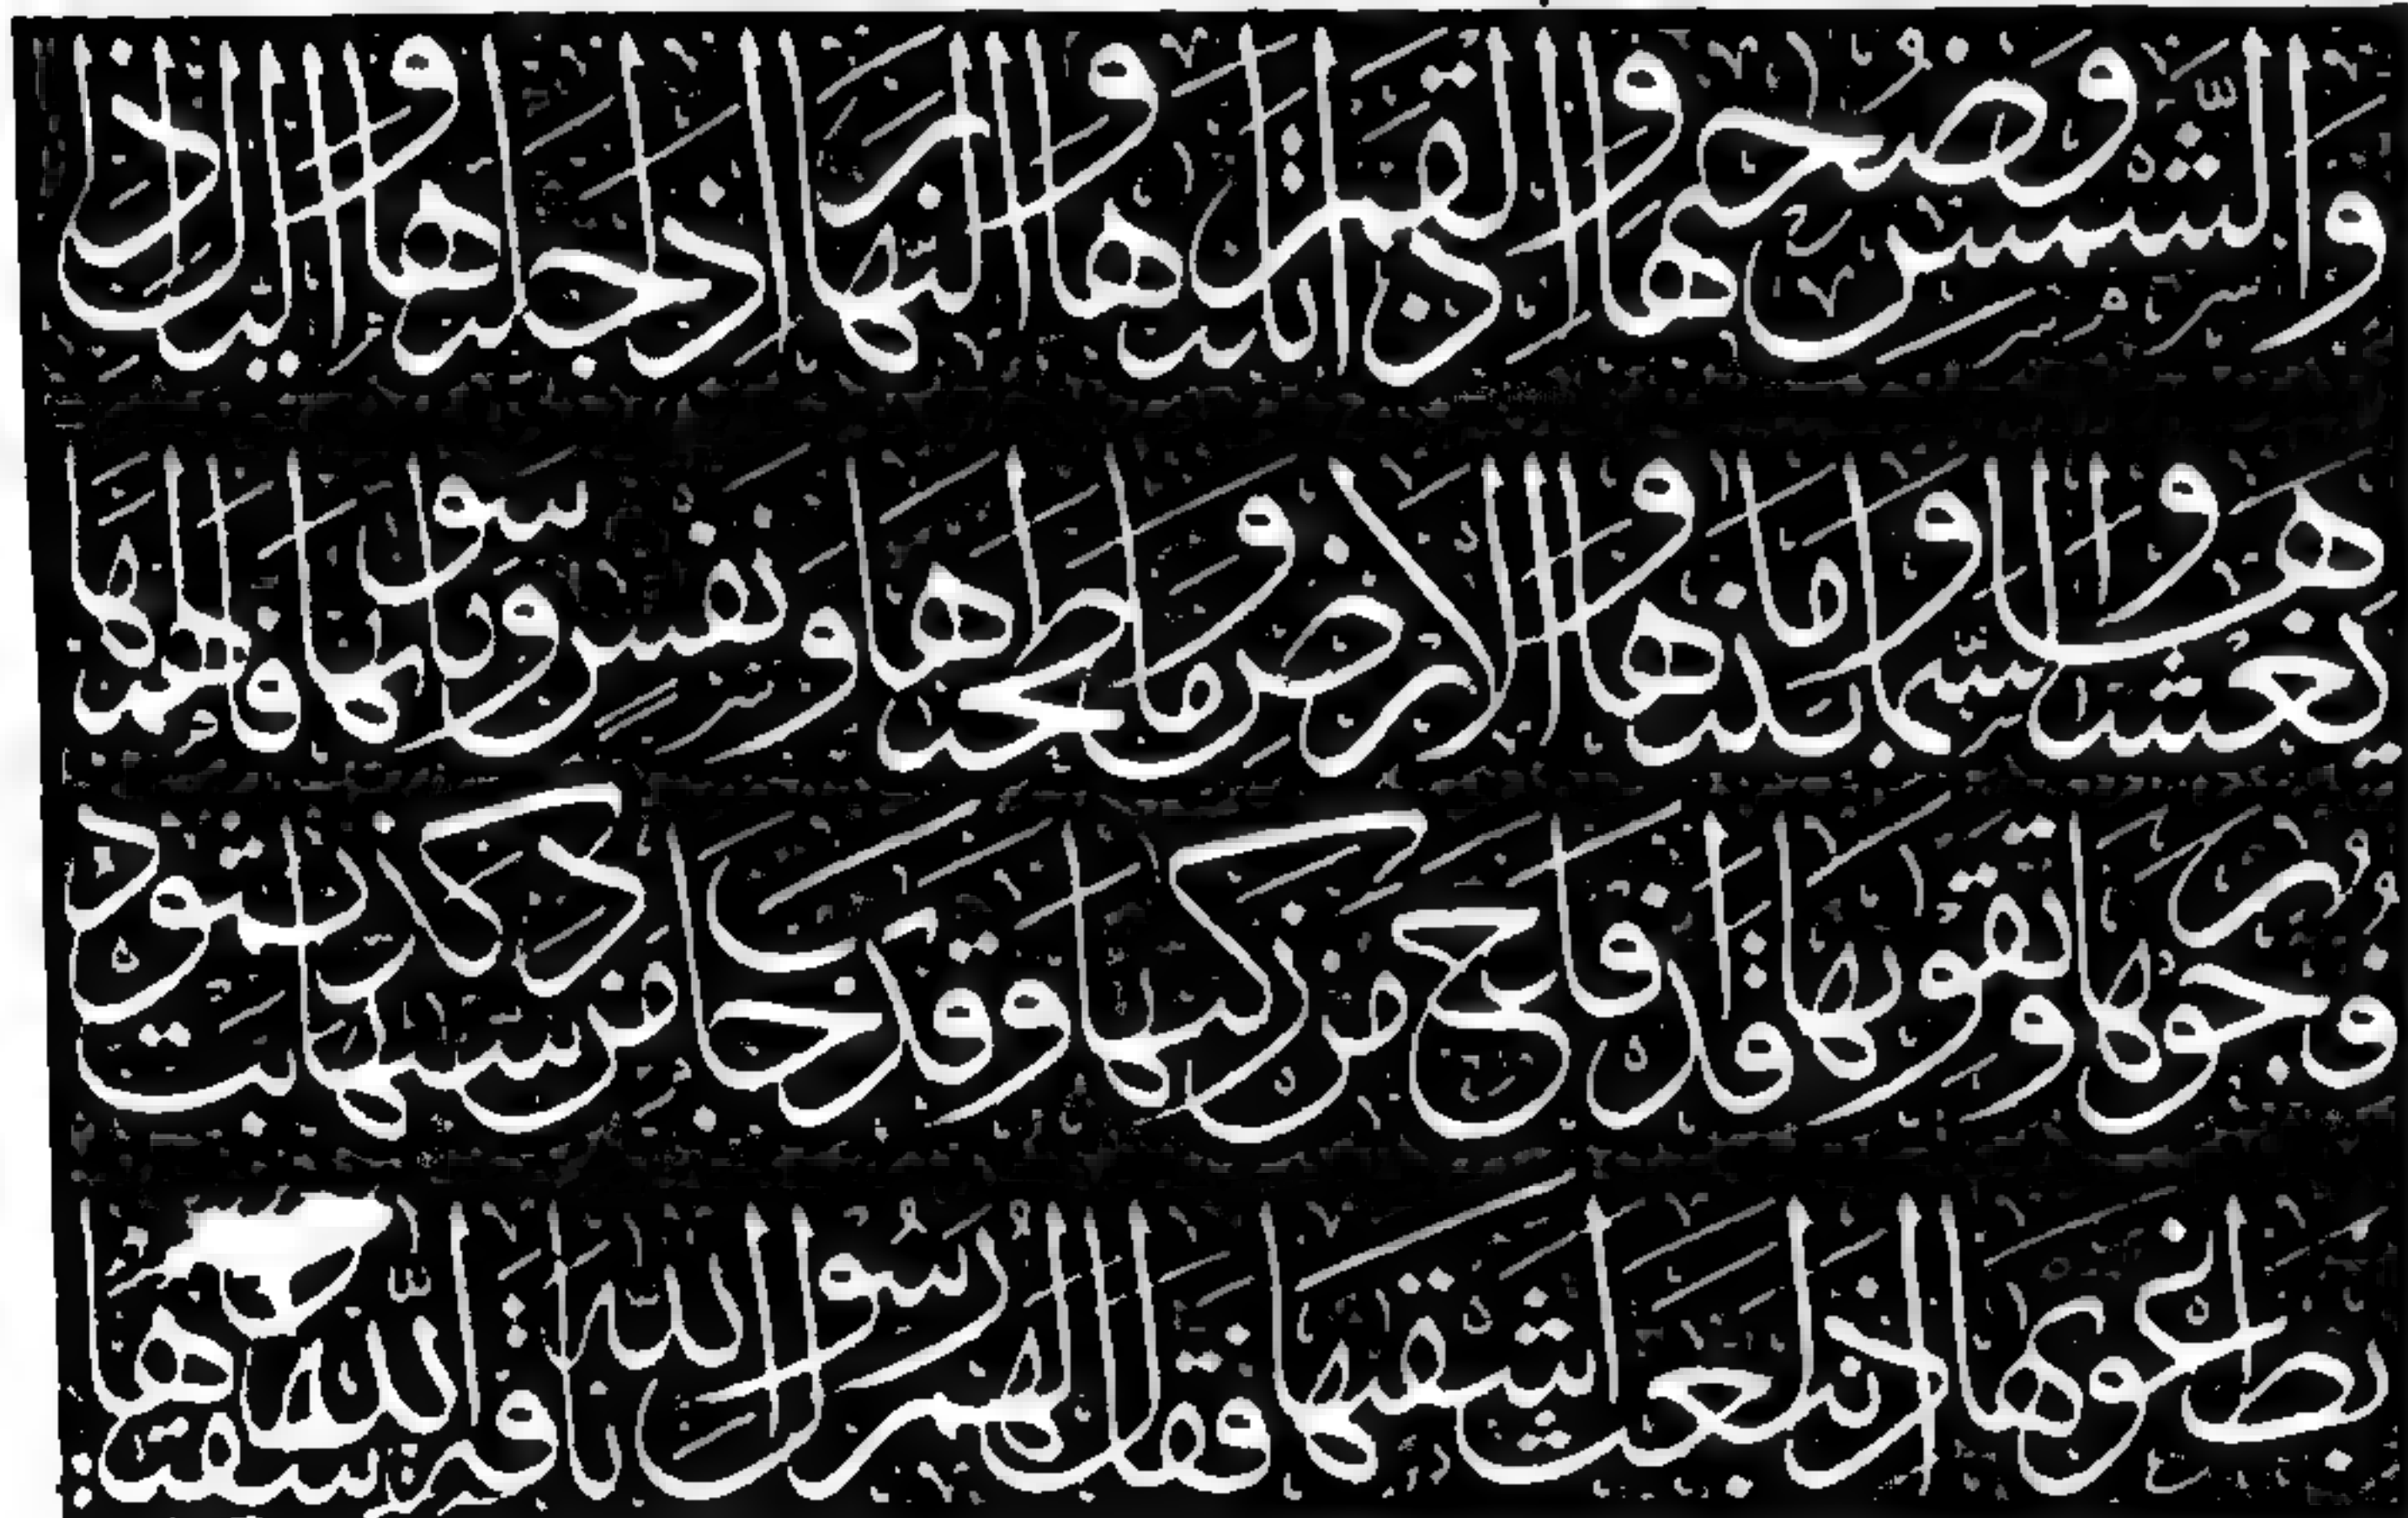 والشمس وضحيها والقمر اذا تليها والنهار اذا جليها واليل اذا
يغشيها والسماء وما بنيها والارض وما طحيها ونفس وما سويها فالهمها
فجورها وتقويها قد افلح من زكيها وقد خاب من دسيها كذبت ثمود
بطغويها اذ انبعث اشقيها فقال لهم رسول الله ناقة الله وسقيها